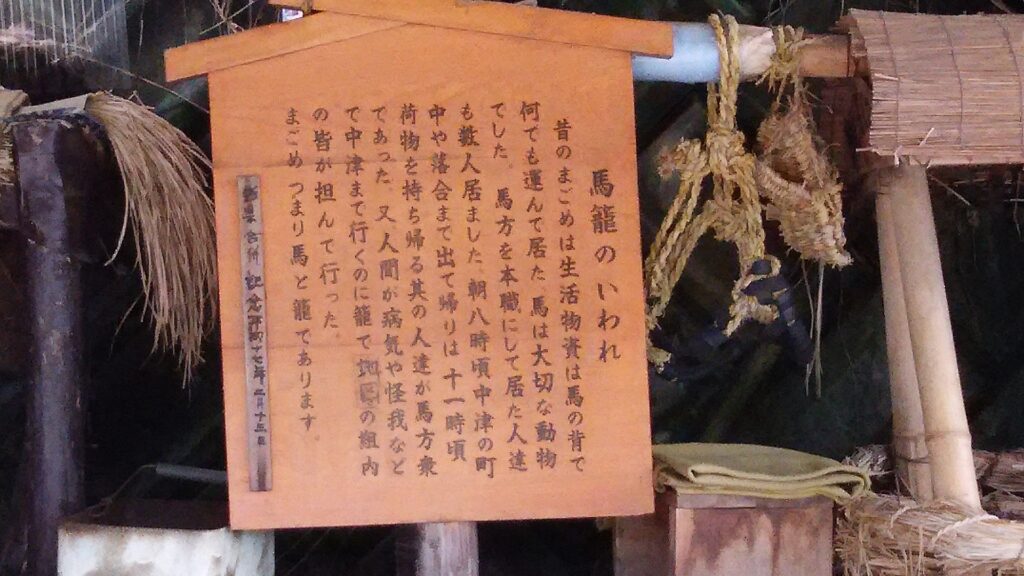 馬籠のいわれ
昔のまごめは生活物資は馬の背で
何でも運んで居た 馬は大切な動物
でした。馬方を本職にして居た人達
も数人居ました。朝八時頃中津の町
中や落合まで出て帰りは十一時頃
荷物を持ち帰る其の人達が馬方衆
であった 又、人間が病気や怪我など
で中津まで行くのに籠で の組内
の皆が担んて行った。
まごめ つまり馬と籠であります
合併記念 十七年 二月十三日